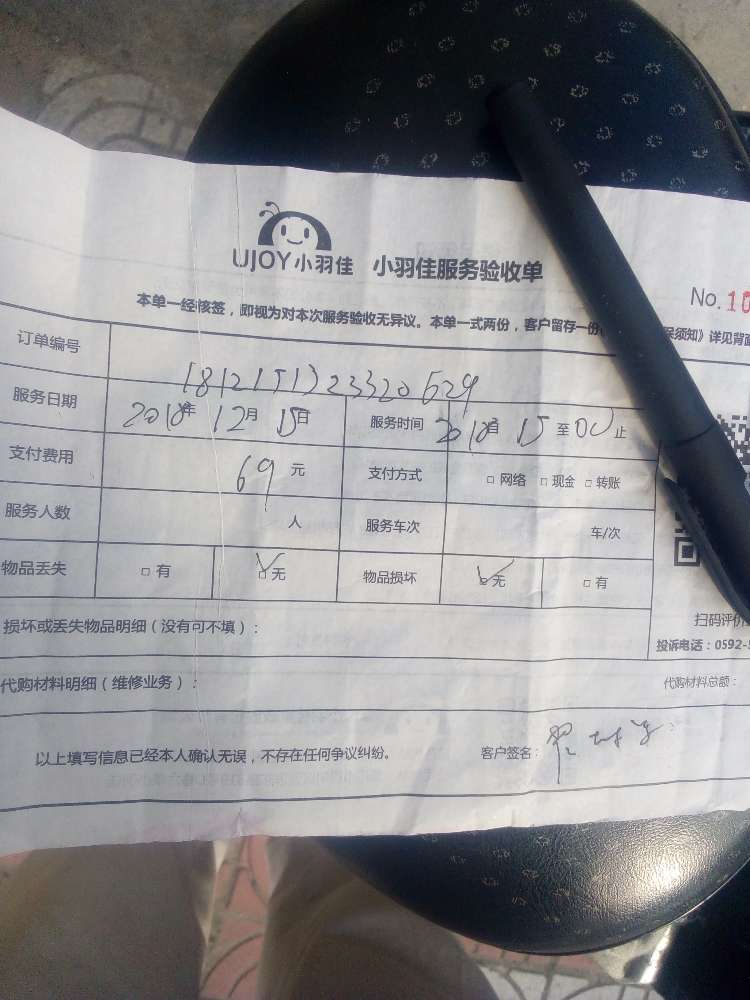 UJOY小羽佳 小羽佳服务验收单
No.10
本单一经核签，即视为对本次服务验收无异议。本单一式两份，客户留存一份 民须知》详见背面
订单编号 1812151323320629
服务日期 2018年 12月 15日 服务时间 2018年 15 至 00 止
支付费用 69 元 支付方式 □ 网络 □ 现金 □ 转账
服务人数 人 服务车次 车/次
物品丢失 □ 有 □ 无 物品损坏 □ 无 □ 有
扫码评价
损坏或丢失物品明细（没有可不填）：
投诉电话：0592-5
代购材料明细（维修业务）： 代购材料总额：
以上填写信息已经本人确认无误，不存在任何争议纠纷。 客户签名：